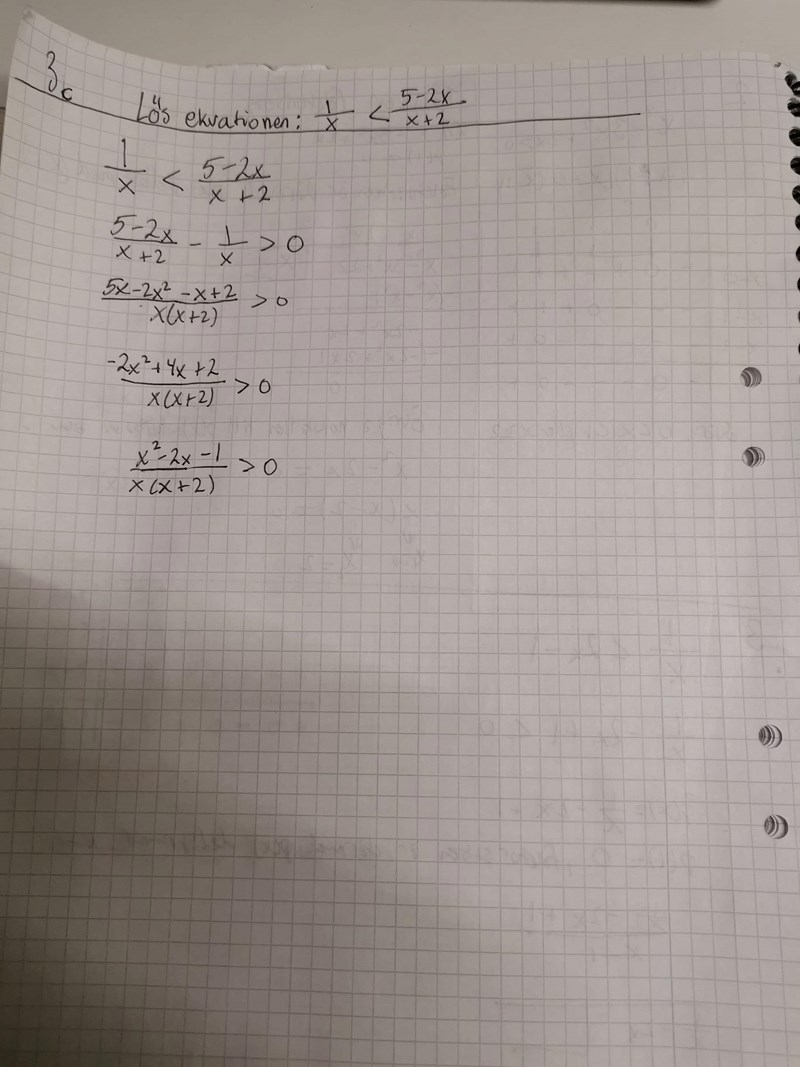 3c Lös ekvationen: 1/x < (5-2x)/(x+2)
1/x < (5-2x)/(x+2)
(5-2x)/(x+2) - 1/x > 0
(5x-2x²-x+2)/(x(x+2)) > 0
(-2x²+4x+2)/(x(x+2)) > 0
(x²-2x-1)/(x(x+2)) > 0